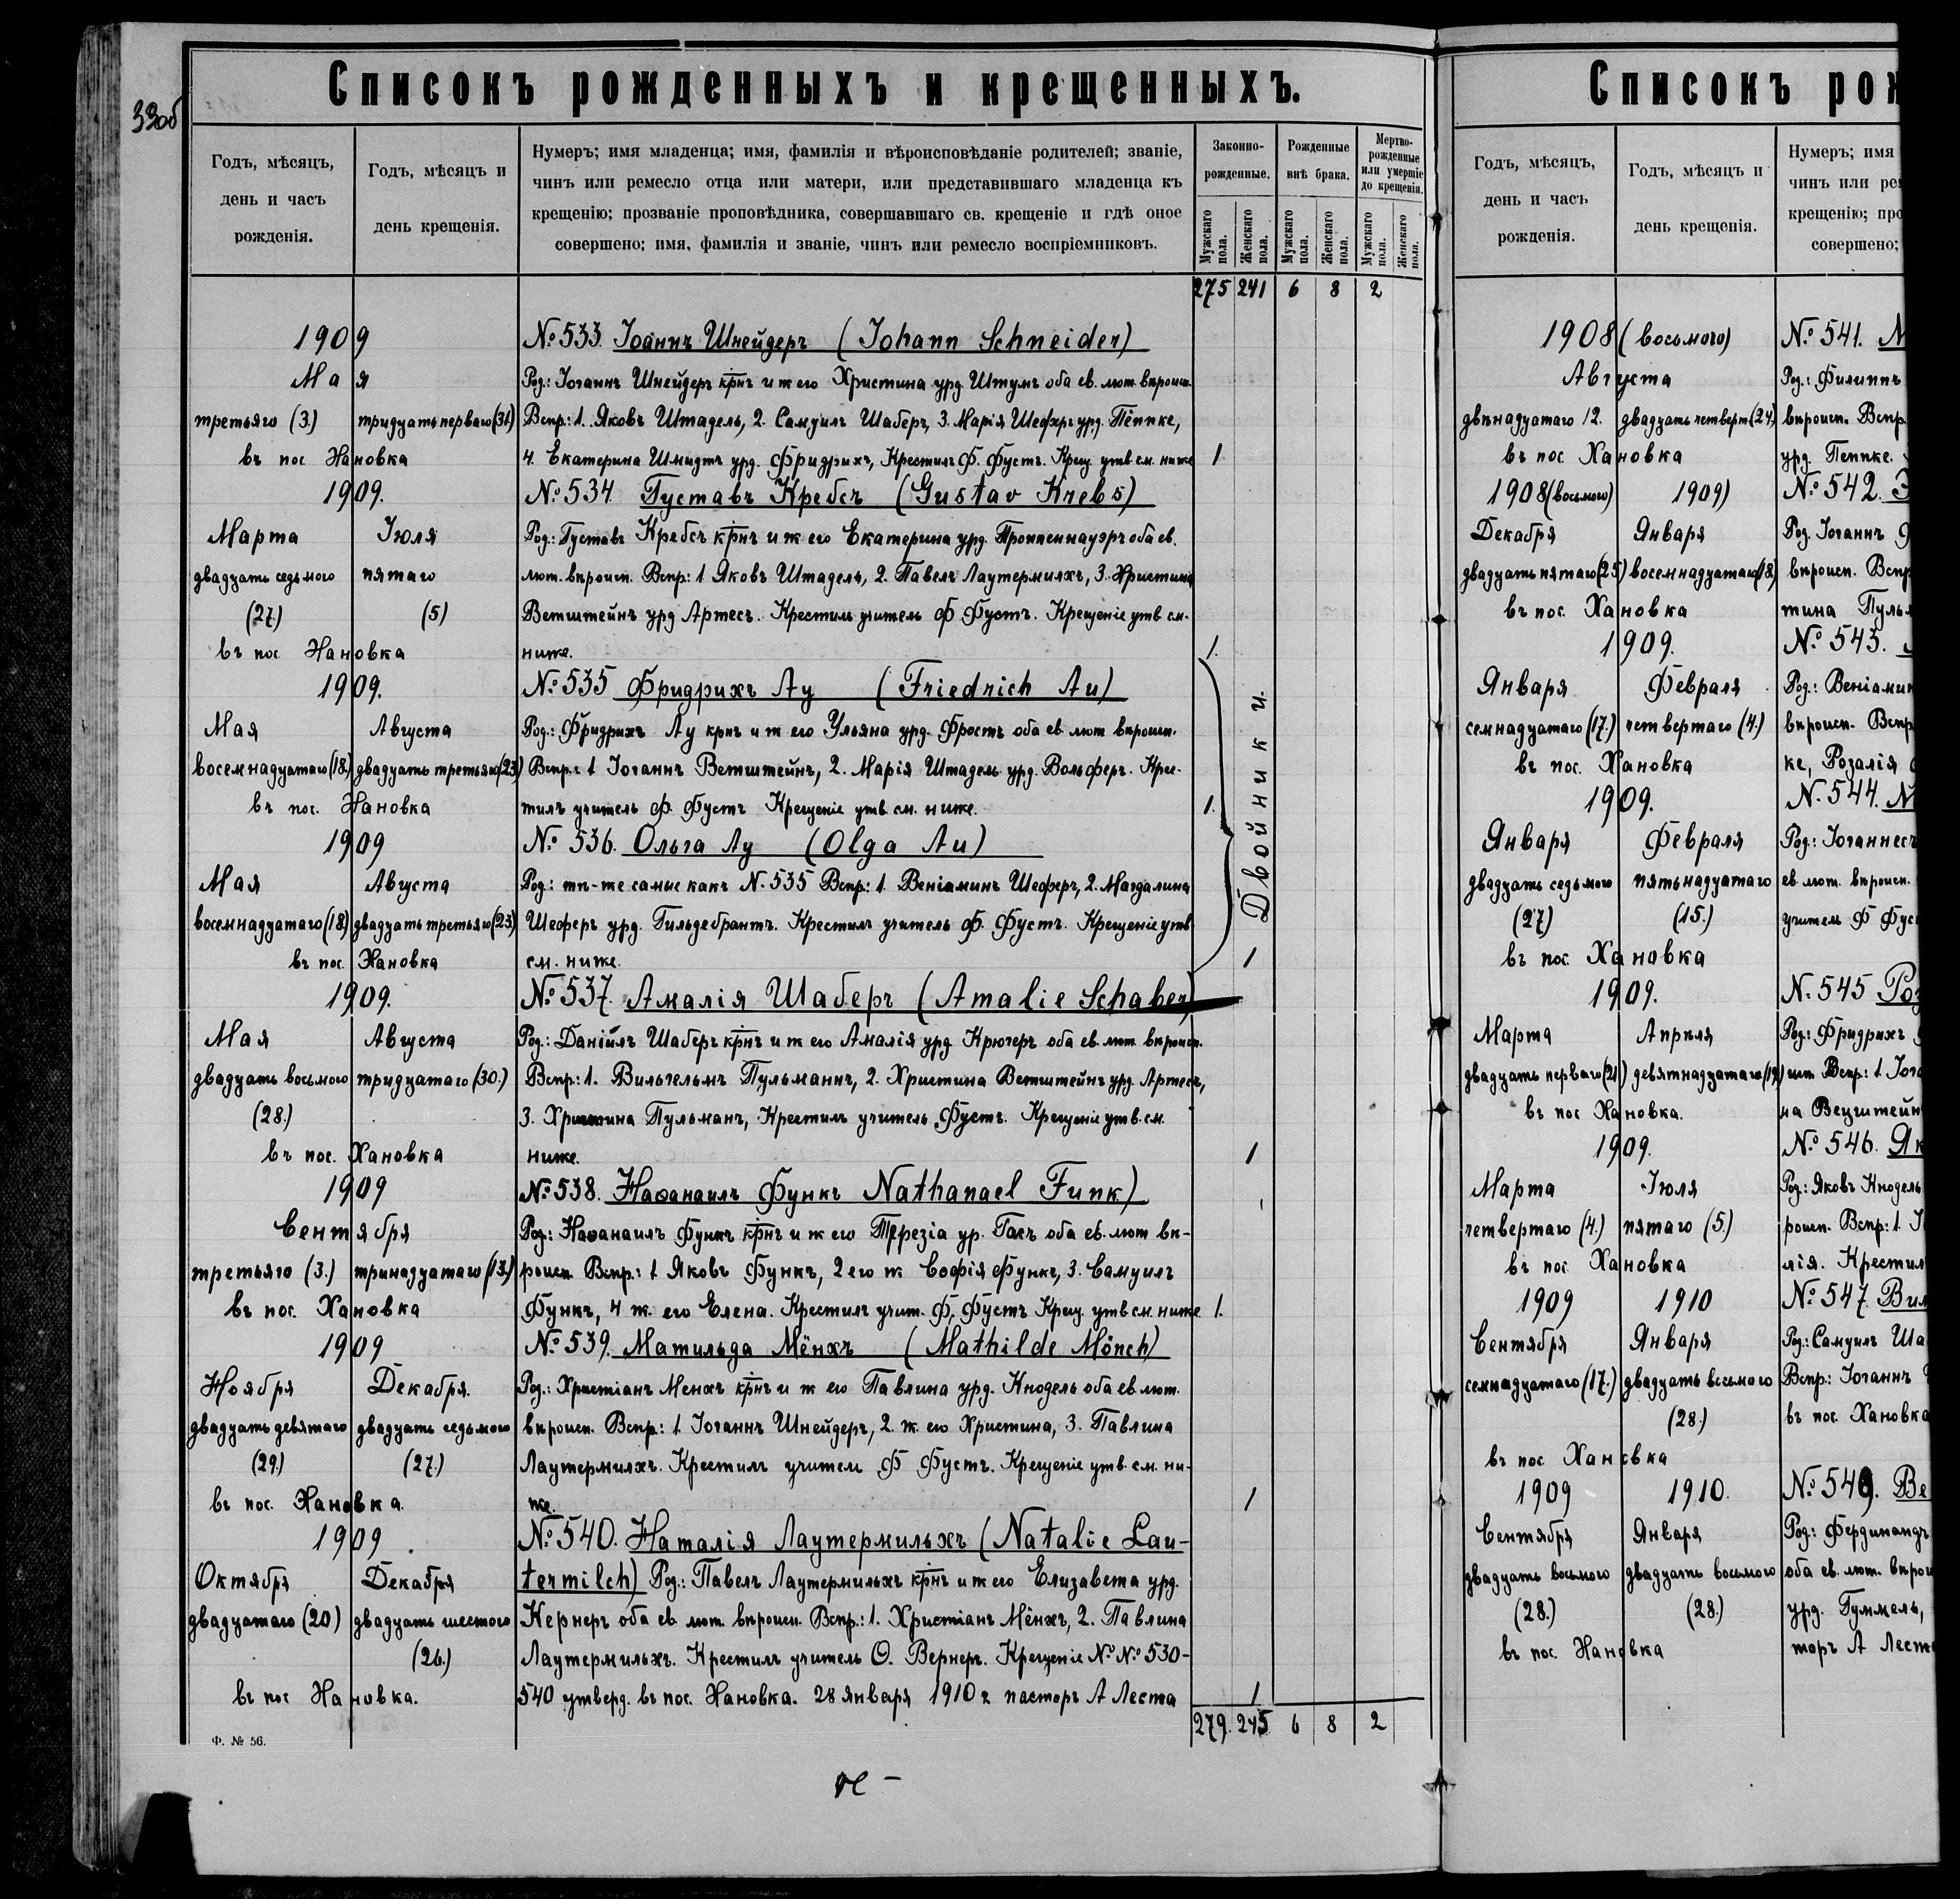 33об
Списокъ рожденныхъ и крещенныхъ.
Годъ, мѣсяцъ, день и часъ рожденія.
Годъ, мѣсяцъ и день крещенія.
Нумеръ; имя младенца; имя, фамилія и вѣроисповѣданіе родителей; званіе,
чинъ или ремесло отца или матери, или представившаго младенца къ
крещенію; прозваніе проповѣдника, совершавшаго св. крещеніе и гдѣ оное
совершено; имя, фамилія и званіе, чинъ или ремесло воспріемниковъ.
Законно-рожденные.
Рожденные внѣ брака.
Мертво-рожденные или умершіе до крещенія.
Мужскаго пола.
Женскаго пола.
Мужскаго пола.
Женскаго пола.
Мужскаго пола.
Женскаго пола.
275 241 6 8 2
1909 №533. Іоаннъ Шнейдеръ (Johann Schneider)
Мая Род.: Іоганнъ Шнейдеръ крнъ и ж его Христина урд. Штумъ оба ев. лют. вѣроисп.
третьяго (3.) тридцать перваго (31.) Вспр.: 1. Яковъ Штадель, 2. Самуилъ Шаберъ, 3. Марія Шеферъ урд. Пеппке,
въ пос. Хановка 4. Екатерина Шмидтъ урд. Фридрихъ, Крестилъ Ф. Фустъ. Крещ. утв. см. ниже 1
1909. №534. Густавъ Кребсъ (Gustav Krebs)
Марта Іюля Род.: Густавъ Кребсъ крнъ и ж его Екатерина урд. Проппеннауэръ оба ев.
двадцать седьмого пятаго лют. вѣроисп. Вспр.: 1 Яковъ Штадель, 2. Павелъ Лаутермилхъ, 3. Христина
(27.) (5) Ветштейнъ урд Артесъ. Крестилъ учитель Ф. Фустъ. Крещеніе утв см.
въ пос Хановка ниже. 1.
1909. №535 Фридрихъ Ау (Friedrich Au)
Мая Августа Род.: Фридрихъ Ау крнъ и ж его Ульяна урд. Фростъ оба ев. лют вѣроисп.
восемнадцатаго (18.) двадцать третьяго (23.) Вспр.: 1 Іоганнъ Ветштейнъ, 2. Марія Штадель урд. Вольферъ. Крес-
въ пос. Хановка тилъ учитель Ф. Фустъ Крещеніе утв см. ниже. 1.
Двойники.
1909 №536. Ольга Ау (Olga Au)
Мая Августа Род.: тѣ-же самые какъ №535 Вспр.: 1. Веніаминъ Шеферъ, 2. Магдалина
восемнадцатаго (18.) двадцать третьяго (23.) Шеферъ урд. Гильдебрантъ. Крестилъ учитель Ф. Фустъ. Крещеніе утв
въ пос. Хановка см. ниже. 1
1909. №537. Амалія Шаберъ (Amalie Schaber)
Мая Августа Род.: Даніилъ Шаберъ крнъ и ж его Амалія урд Крюгеръ оба ев. лют вѣроисп.
двадцать восьмого тридцатаго (30.) Вспр.: 1. Вильгельмъ Пульманнъ, 2. Христина Ветштейнъ урд. Артесъ,
(28.) 3. Христина Пульманъ, Крестилъ учитель Фустъ. Крещеніе утв. см.
въ пос. Хановка ниже. 1
1909 №538. Наѳанаилъ Функъ Nathanael Funk)
Сентября Род.: Наѳанаилъ Функъ крнъ и ж его Терезіа ур. Гасъ оба ев. лют вѣ-
третьяго (3.) тринадцатаго (13.) роисп. Вспр.: 1 Яковъ Функъ, 2 его ж Софія Функъ, 3. Самуилъ
въ пос. Хановка Функъ, 4 ж. его Елена. Крестилъ учит. Ф. Фустъ Крещ. утв см. ниже 1.
1909 №539. Матильда Мёнхъ (Mathilde Mönch)
Ноября Декабря. Род.: Христіанъ Менхъ крнъ и ж его Павлина урд. Кнодель оба ев. лют.
двадцать девятаго двадцать седьмого вѣроисп. Вспр.: 1. Іоганнъ Шнейдеръ, 2. ж. его Христина, 3. Павлина
(29.) (27.) Лаутермилхъ. Крестилъ учитель Ф Фустъ. Крещеніе утв. см. ни-
въ пос. Хановка. же. 1
1909 №540. Наталія Лаутермильхъ (Natalie Lau-
Октября Декабря termilch) Род.: Павелъ Лаутермильхъ крнъ и ж его Елизавета урд.
двадцатаго (20) двадцать шестого Кернеръ оба ев. лют. вѣроисп. Вспр.: 1. Христіанъ Мёнхъ, 2. Павлина
(26.) Лаутермильхъ. Крестилъ учитель О. Вернеръ. Крещеніе №№ 530-
въ пос Хановка. 540 утверд. въ пос. Хановка. 28 января 1910 г. пасторъ А Леста 1
279. 245 6 8 2
Ф. № 56.
Списокъ рож
Годъ, мѣсяцъ, день и часъ рожденія.
Годъ, мѣсяцъ и день крещенія.
Нумеръ; имя
чинъ или ре
крещенію; про
совершено;
1908 (восьмого) №541.
Августа Род.: Филиппъ
двѣнадцатаго 12. двадцать четверт (24.) вѣроисп. Вспр
въ пос. Хановка урд. Пеппке.
1908 (восьмого) 1909) №542. Э
Декабря Января Род. Іоганнъ
двадцать пятаго (25) восемнадцатаго (18.) вѣроисп. Вспр
въ пос. Хановка тина Пуль
1909. №543.
Января Февраля Род.: Веніамин
семнадцатаго (17.) четвертаго (4.) вѣроисп. Вспр
въ пос. Хановка ке, Розалія
1909. №544.
Января Февраля Род.: Іоганнесъ
двадцать седьмого пятьнадцатаго ев. лют. вѣроисп.
(27) (15.) учитель Ф Фус
въ пос. Хановка
1909. №545 Роз
Марта Апрѣля Род.: Фридрихъ
двадцать перваго (21) девятнадцатаго (19.) Вспр.: 1 Іог
въ пос Хановка. на Вецштейн
1909. №546. Як
Марта Іюля Род.: Яковъ Кнодель
четвертаго (4.) пятаго (5.) роисп. Вспр.: 1.
въ пос Хановка лія. Крестил
1909 1910 №547. Вил
Сентября Января Род.: Самуилъ Ша
семнадцатаго (17.) двадцать восьмого Вспр.: Іоганнъ
(28.) въ пос. Хановка
въ пос Хановка
1909 1910. №549. Ве
Сентября Января Род.: Фердинандъ
двадцать восьмого двадцать восьмого оба ев. лют. вѣрои
(28.) (28.) урд. Гуммель,
въ пос. Хановка торъ А Лест